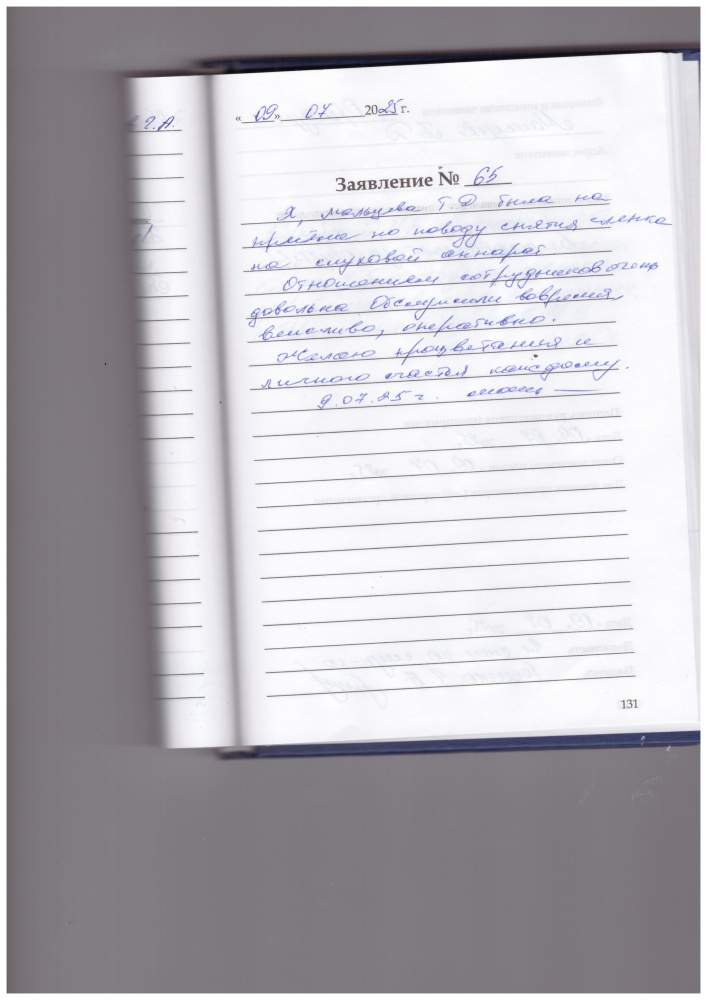 г. А.
«09» 07 2025 г.
Заявление № 65
Я, Мальцева Т.Д была на
приёме по поводу снятия слепка
на слуховой аппарат
Отношением сотрудников очень
довольна Обслужили вовремя,
вежливо, оперативно.
Желаю процветания и
личного счастья каждому.
9.07.25 г.
131